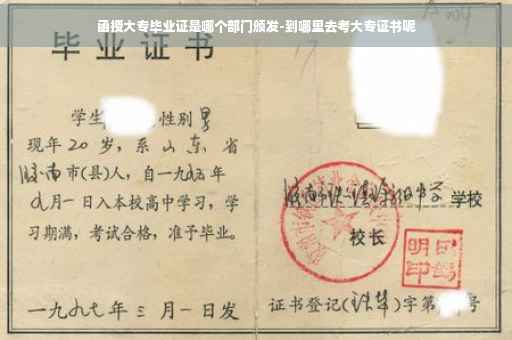 函授大专毕业证是哪个部门颁发-到哪里去考大专证书呢
毕业证书
学生 性别男
现年20岁，系山东省
济南市(县)人，自一九九五年
九月一日入本校高中学习，学
习期满，考试合格，准予毕业。
一九九七年三月一日发
学校
校长
证书登记( )字第 号